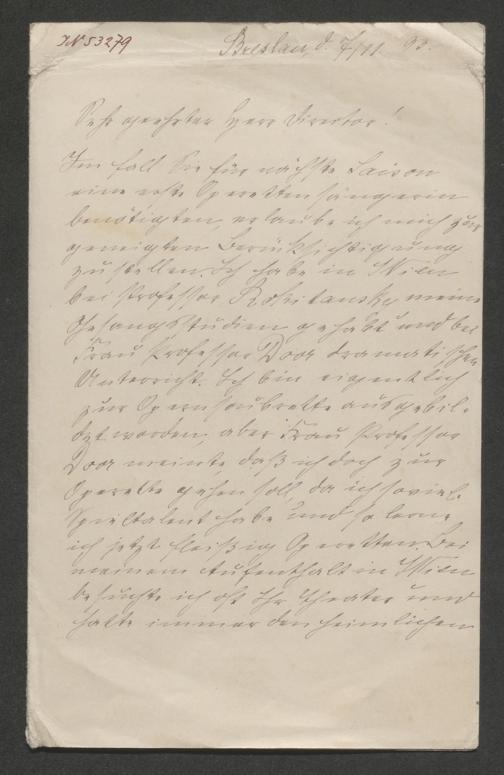 IN 53279
Breslau, d. 7/11 93.
Sehr geehrter Herr Director!
Im Fall Sie für nächste Saison
eine erste Operettensängerin
benötigten, erlaube ich mich zur
geneigten Berücksichtigung
zu stellen. Ich habe in Wien
bei Professor Rokitansky meine
Gesangsstudien gehabt und bei
Frau Professor Door dramatischen
Unterricht. Ich bin eigentlich
zur Opernsoubrette ausgebil-
det worden, aber Frau Professor
Door meinte daß ich doch zur
Operette gehen soll, da ich soviel
Spieltalent habe und so lerne
ich jetzt fleißig Operetten. Bei
meinem Aufenthalt in Wien
besuchte ich oft Ihr Theater und
hatte immer den heimlichen